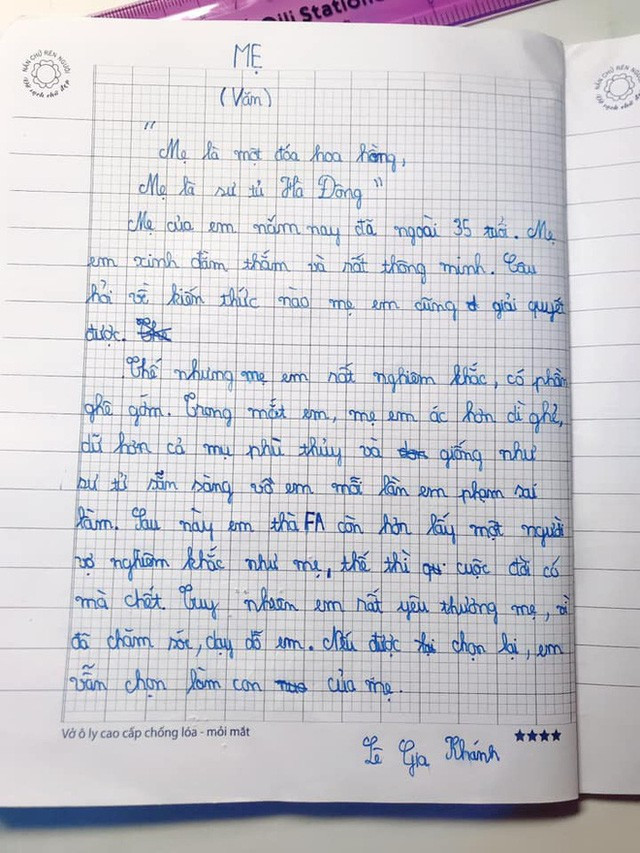 Qili Station
NẮN CHỮ RÈN NGƯỜI
Vở sạch chữ đẹp
MẸ
(Văn)
"
Mẹ là một đóa hoa hồng,
Mẹ là sư tử Hà Đông"
Mẹ của em năm nay đã ngoài 35 tuổi. Mẹ
em xinh đằm thắm và rất thông minh. Câu
hỏi về kiến thức nào mẹ em cũng giải quyết
được.
Thế nhưng mẹ em rất nghiêm khắc, có phần
ghê gớm. Trong mắt em, mẹ em ác hơn dì ghẻ,
dữ hơn cả mụ phù thủy và giống như
sư tử sẵn sàng vồ em mỗi lần em phạm sai
lầm. Sau này em thà FA còn hơn lấy một người
vợ nghiêm khắc như mẹ, thế thì cuộc đời có
mà chết. Tuy nhiên em rất yêu thương mẹ, vì
đã chăm sóc, dạy dỗ em. Nếu được chọn lại, em
vẫn chọn làm con của mẹ.
Vở ô ly cao cấp chống lóa - mỏi mắt
Lê Gia Khánh